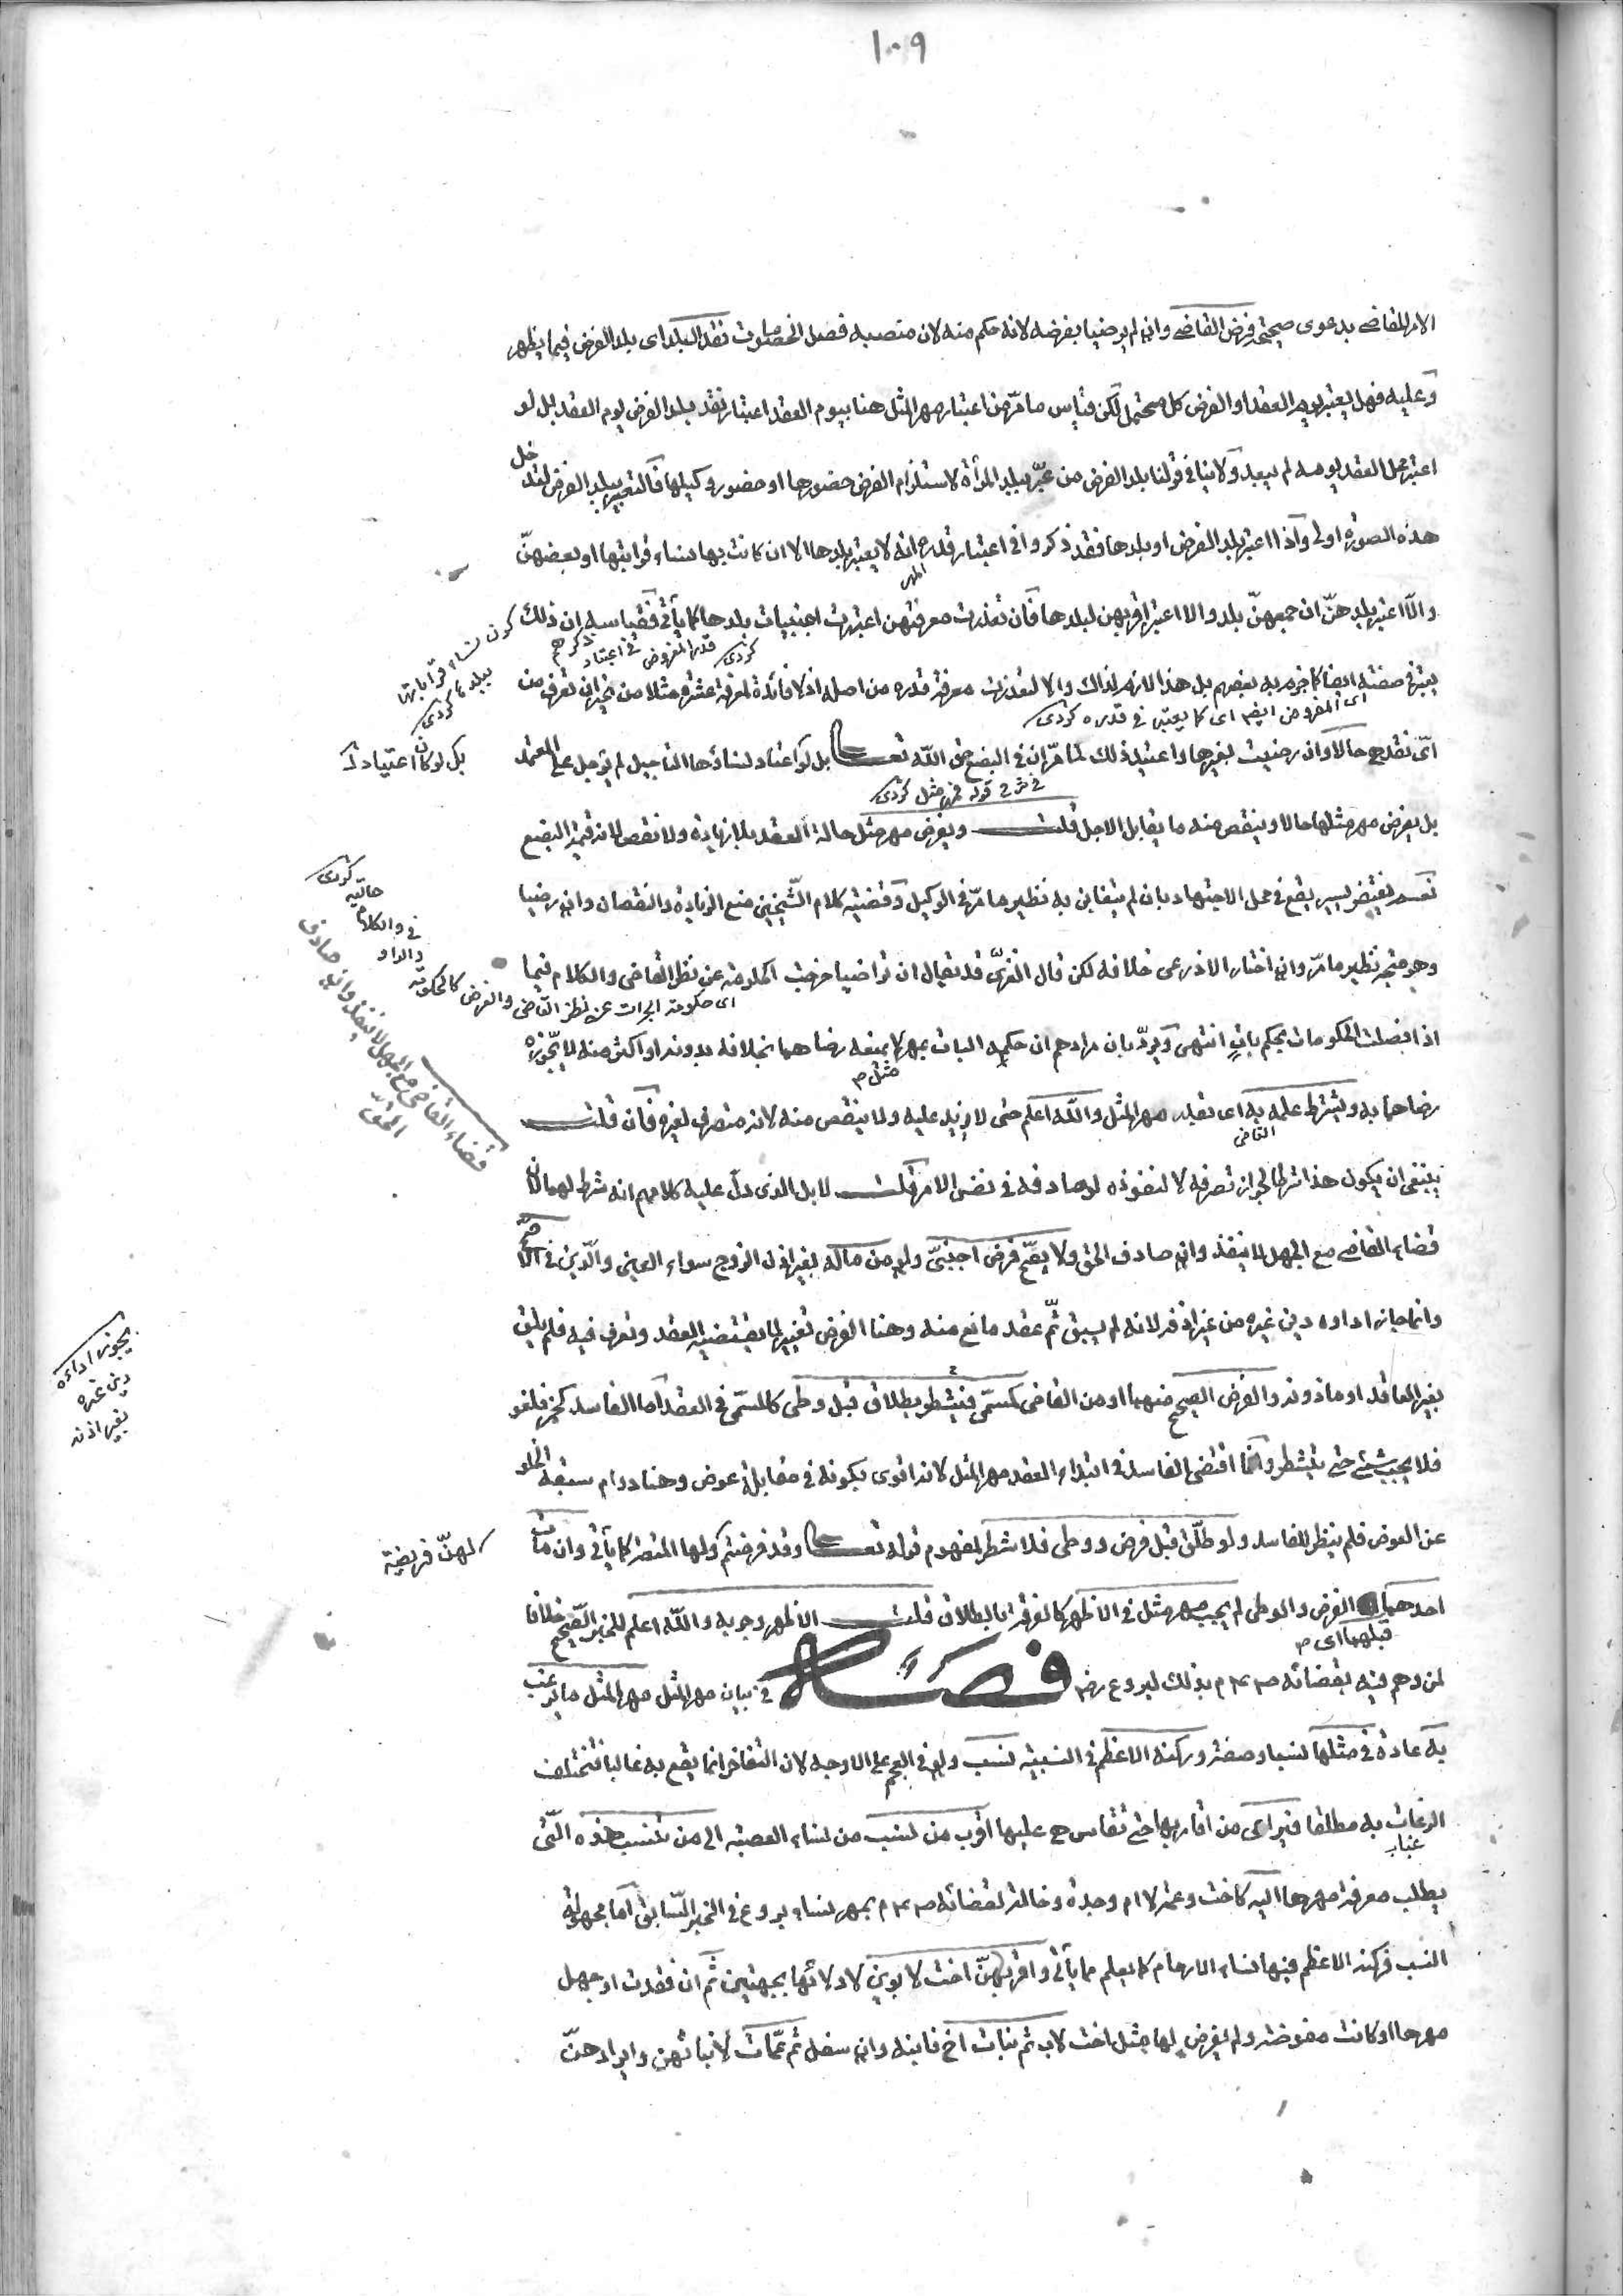 ١٠٩
الامر للقاضي بدعوى صحيحة فرض القاضي وان لم يرضيا بفرضه لانه حكم منه لان منصبه فصل الخصومات نقد البلد اى بلد الفرض فيما يظهر
وعليه فهل يعتبر يوم العقد او الفرض كل محتمل لكن قياس ما مرّ من اعتبار مهر المثل هنا بيوم العقد اعتبار نقد بلد الفرض يوم العقد بل لو
اعتبر محل العقد يومه لم يبعد ولا ينافى قولنا بلد الفرض من عبّر ببلد المرأة لاستلزام الفرض حضورها او حضور وكيلها فالتعبير ببلد الفرض لتدخل
هذه الصورة اولى واذا اعتبر بلد الفرض او بلدها فقد ذكروا فى اعتبار قدره انه لا يعتبر بلدها الا ان كانت بها نساء قراباتها او بعضهنّ
المهر
والّا اعتبر بلدهنّ ان جمعهنّ بلد والا اعتبر اقربهن لبلدها فان تعذرت معرفتهن اعتبرت اجنبيات بلدها كما يأتى فقياسه ان ذلك
كون نساء قراباتها ببلدها كردى
قدر المفروض كردى
ذكرهم فى اعتبار
يعتبر فى صفته ايضا كما جزم به بعضهم بل هذا لازم لذاك والا لتعذرت معرفة قدره من اصله اذ لا فائدة لمعرفة عشرة مثلا من غير ان تعرف من
اى المفروض ايضا اى كما يعتبر فى قدره كردى
اىّ نقد هى حالا وان رضيت بغيرها واعتيد ذلك لما مرّ ان فى البضع حق اللّه تعالى بل لو اعتاد نساؤها التأجيل لم يؤجل على المعتمد
بل لو كان اعتياد
فى شرح قوله فمهر مثل كردى
بل يفرض مهر مثلها حالا وينقص منه ما يقابل الاجل قلت ويفرض مهر مثل حالة العقد بلا زيادة ولا نقص لانه قيمة البضع
نعم يغتفر يسير يقع فى محل الاجتهاد بان لم يتغابن به نظير ما مرّ فى الوكيل وقضية كلام الشّيخين منع الزيادة والنقصان وان رضيا
وهو متجه نظير ما مرّ وان اختار الاذرعى خلافه لكن قال الغزىّ قد يقال ان تراضيا خرجت الحكومة عن نظر القاضى والكلام فيما
والواو فى والكلام حالية كردى
اى حكومة الجراحات عن نظر القاضى والفرض كالحكومة
اذا فصلت الحكومات بحكم باتٍ انتهى ويردّ بان مرادهم ان حكمه البات بمهر لا يمنعه رضاهما بخلافه بدونه او اكثر منه لا يجّوزه
مثل صح
رضاهما به ويشترط علمه به اى بقدر مهر المثل واللّه اعلم حتى لا يزيد عليه ولا ينقص منه لانه متصرف لغيره فان قلت
القاضى
قضاء القاضى مع الجهل لا ينفذ وان صادف الحق
ينبغى ان يكون هذا شرطا لجواز تصرفه لا لنفوذه لو صادفه فى نفس الامر قلت لا بل الذى دلّ عليه كلامهم انه شرط لهما لان
قضاء القاضى مع الجهل لا ينفذ وان صادف الحق ولا يصّح فرض اجنبىّ ولو من ماله بغير اذن الزوج سواء العين والدّين فى الاصح
وانما جاز اداؤه دين غيره من غير اذنه لانه لم يسبق ثَمّ عقد مانع منه وهنا الفرض تغيير لما يقتضيه العقد وتصرف فيه فلم يلق
يجوز اداءه دين غيره بغير اذنه
بغير العاقد او ماذونه والفرض الصحيح منهما او من القاضى كمسمّى فيتشطر بطلاق قبل وطى كالمسمّى فى العقد اما الفاسد كخمر فلغو
فلا يجب شئ حتى يتشطر وانما اقتضى الفاسد فى ابتداء العقد مهر المثل لانه اقوى بكونه فى مقابلة عوض وهنا دوام سبقه الخلو
عن العوض فلم ينظر للفاسد ولو طلّق قبل فرض ووطى فلا شطر لمفهوم قوله تعالى وقد فرضتم ولها المتعة كما يأتى وان مات
لهنّ فريضة
احدهما الفرض والوطى لم يجب مهر مثل فى الاظهر كالفرقة بالطلاق قلت الاظهر وجوبه واللّه اعلم للخبر الصّحيح خلافا
قبلهما اى صح
لمن وهم فيه بقضائه صـ ٤ م بذلك لبروع رضـ فصل فى بيان مهر المثل مهر المثل ما يرغب
به عادة فى مثلها نسبا وصفة وركنه الاعظم فى النسيبة نسب ولو فى العجم على الاوجه لان التفاخر انما يقع به غالبا فتختلف
الرغبات به مطلقا فيراعى من اقاربها حتى تقاس هى عليها اقرب من تنسب من نساء العصبة الى من تنسب هذه الّتى
يطلب معرفة مهرها اليه كاخت وعمة لا ام وجدة وخالة لقضائه صـ ٤ م بمهر نساء بروع فى الخبر السّابق اما مجهولة
النسب فركنه الاعظم فيها نساء الارحام كما يعلم مما يأتى واقربهنّ اخت لابوين لادلائها بجهتين ثم ان فقدت او جهل
مهرها او كانت مفوضة ولم يفرض لها مثل اخت لاب ثم بنات اخ فابنه وان سفل ثم عمّات لا بناتهن وايرادهنّ